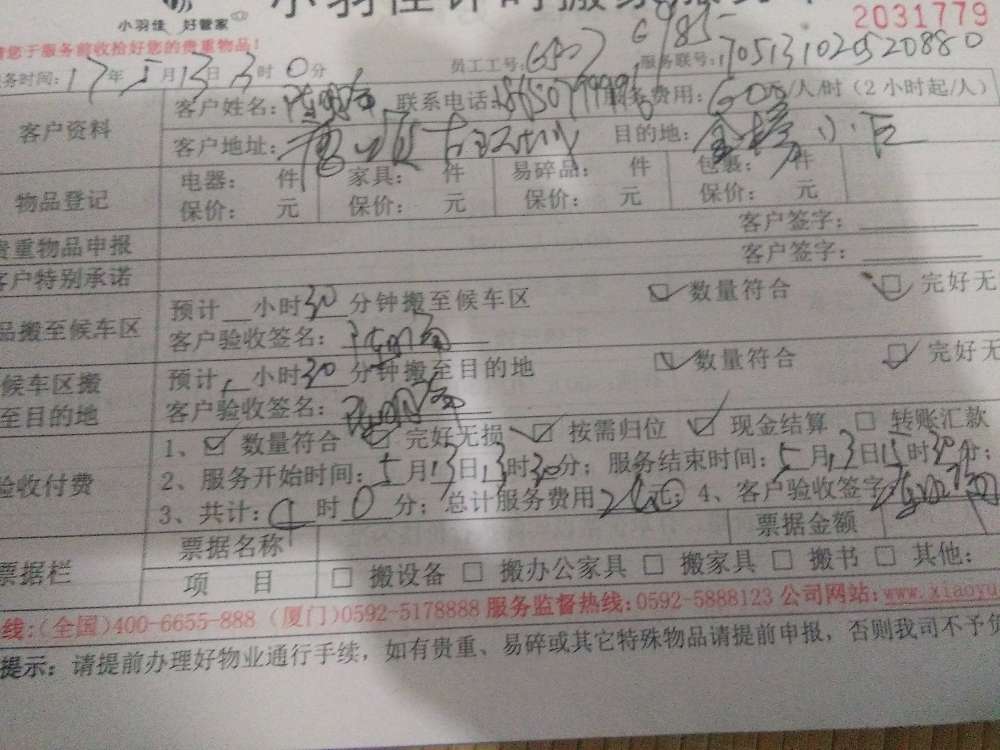 小羽佳 好管家
2031779
您于服务前收检好您的贵重物品!
务时间:17年5月13日13时0分 员工工号: 服务联号:170513102520880
客户资料
客户姓名: 联系电话: 服务费用: /人/时(2小时起/人)
客户地址: 目的地: 小区
物品登记
电器: 件 家具: 件 易碎品: 件 包裹: 件
保价: 元 保价: 元 保价: 元 保价: 元
贵重物品申报 客户签字:
客户特别承诺 客户签字:
品搬至候车区
预计__小时30分钟搬至候车区 数量符合 完好无
客户验收签名:
候车区搬
至目的地
预计 小时30分钟搬至目的地 数量符合 完好无
客户验收签名:
验收付费
1、数量符合 完好无损 按需归位 现金结算 转账汇款
2、服务开始时间:5月13日13时30分;服务结束时间:5月13日15时30分;
3、共计: 时0分;总计服务费用 元;4、客户验收签字
票据栏
票据名称 票据金额
项 目 搬设备 搬办公家具 搬家具 搬书 其他:
线:(全国)400-6655-888 (厦门)0592-5178888 服务监督热线:0592-5888123 公司网站:www.xiaoyu
提示:请提前办理好物业通行手续,如有贵重、易碎或其它特殊物品请提前申报,否则我司不予负